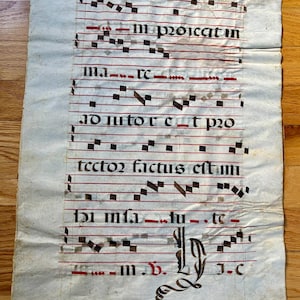 m proiecit in
ma re
ad iutor e t pro
tector factus est mi
hi in sa lu te
m. V.